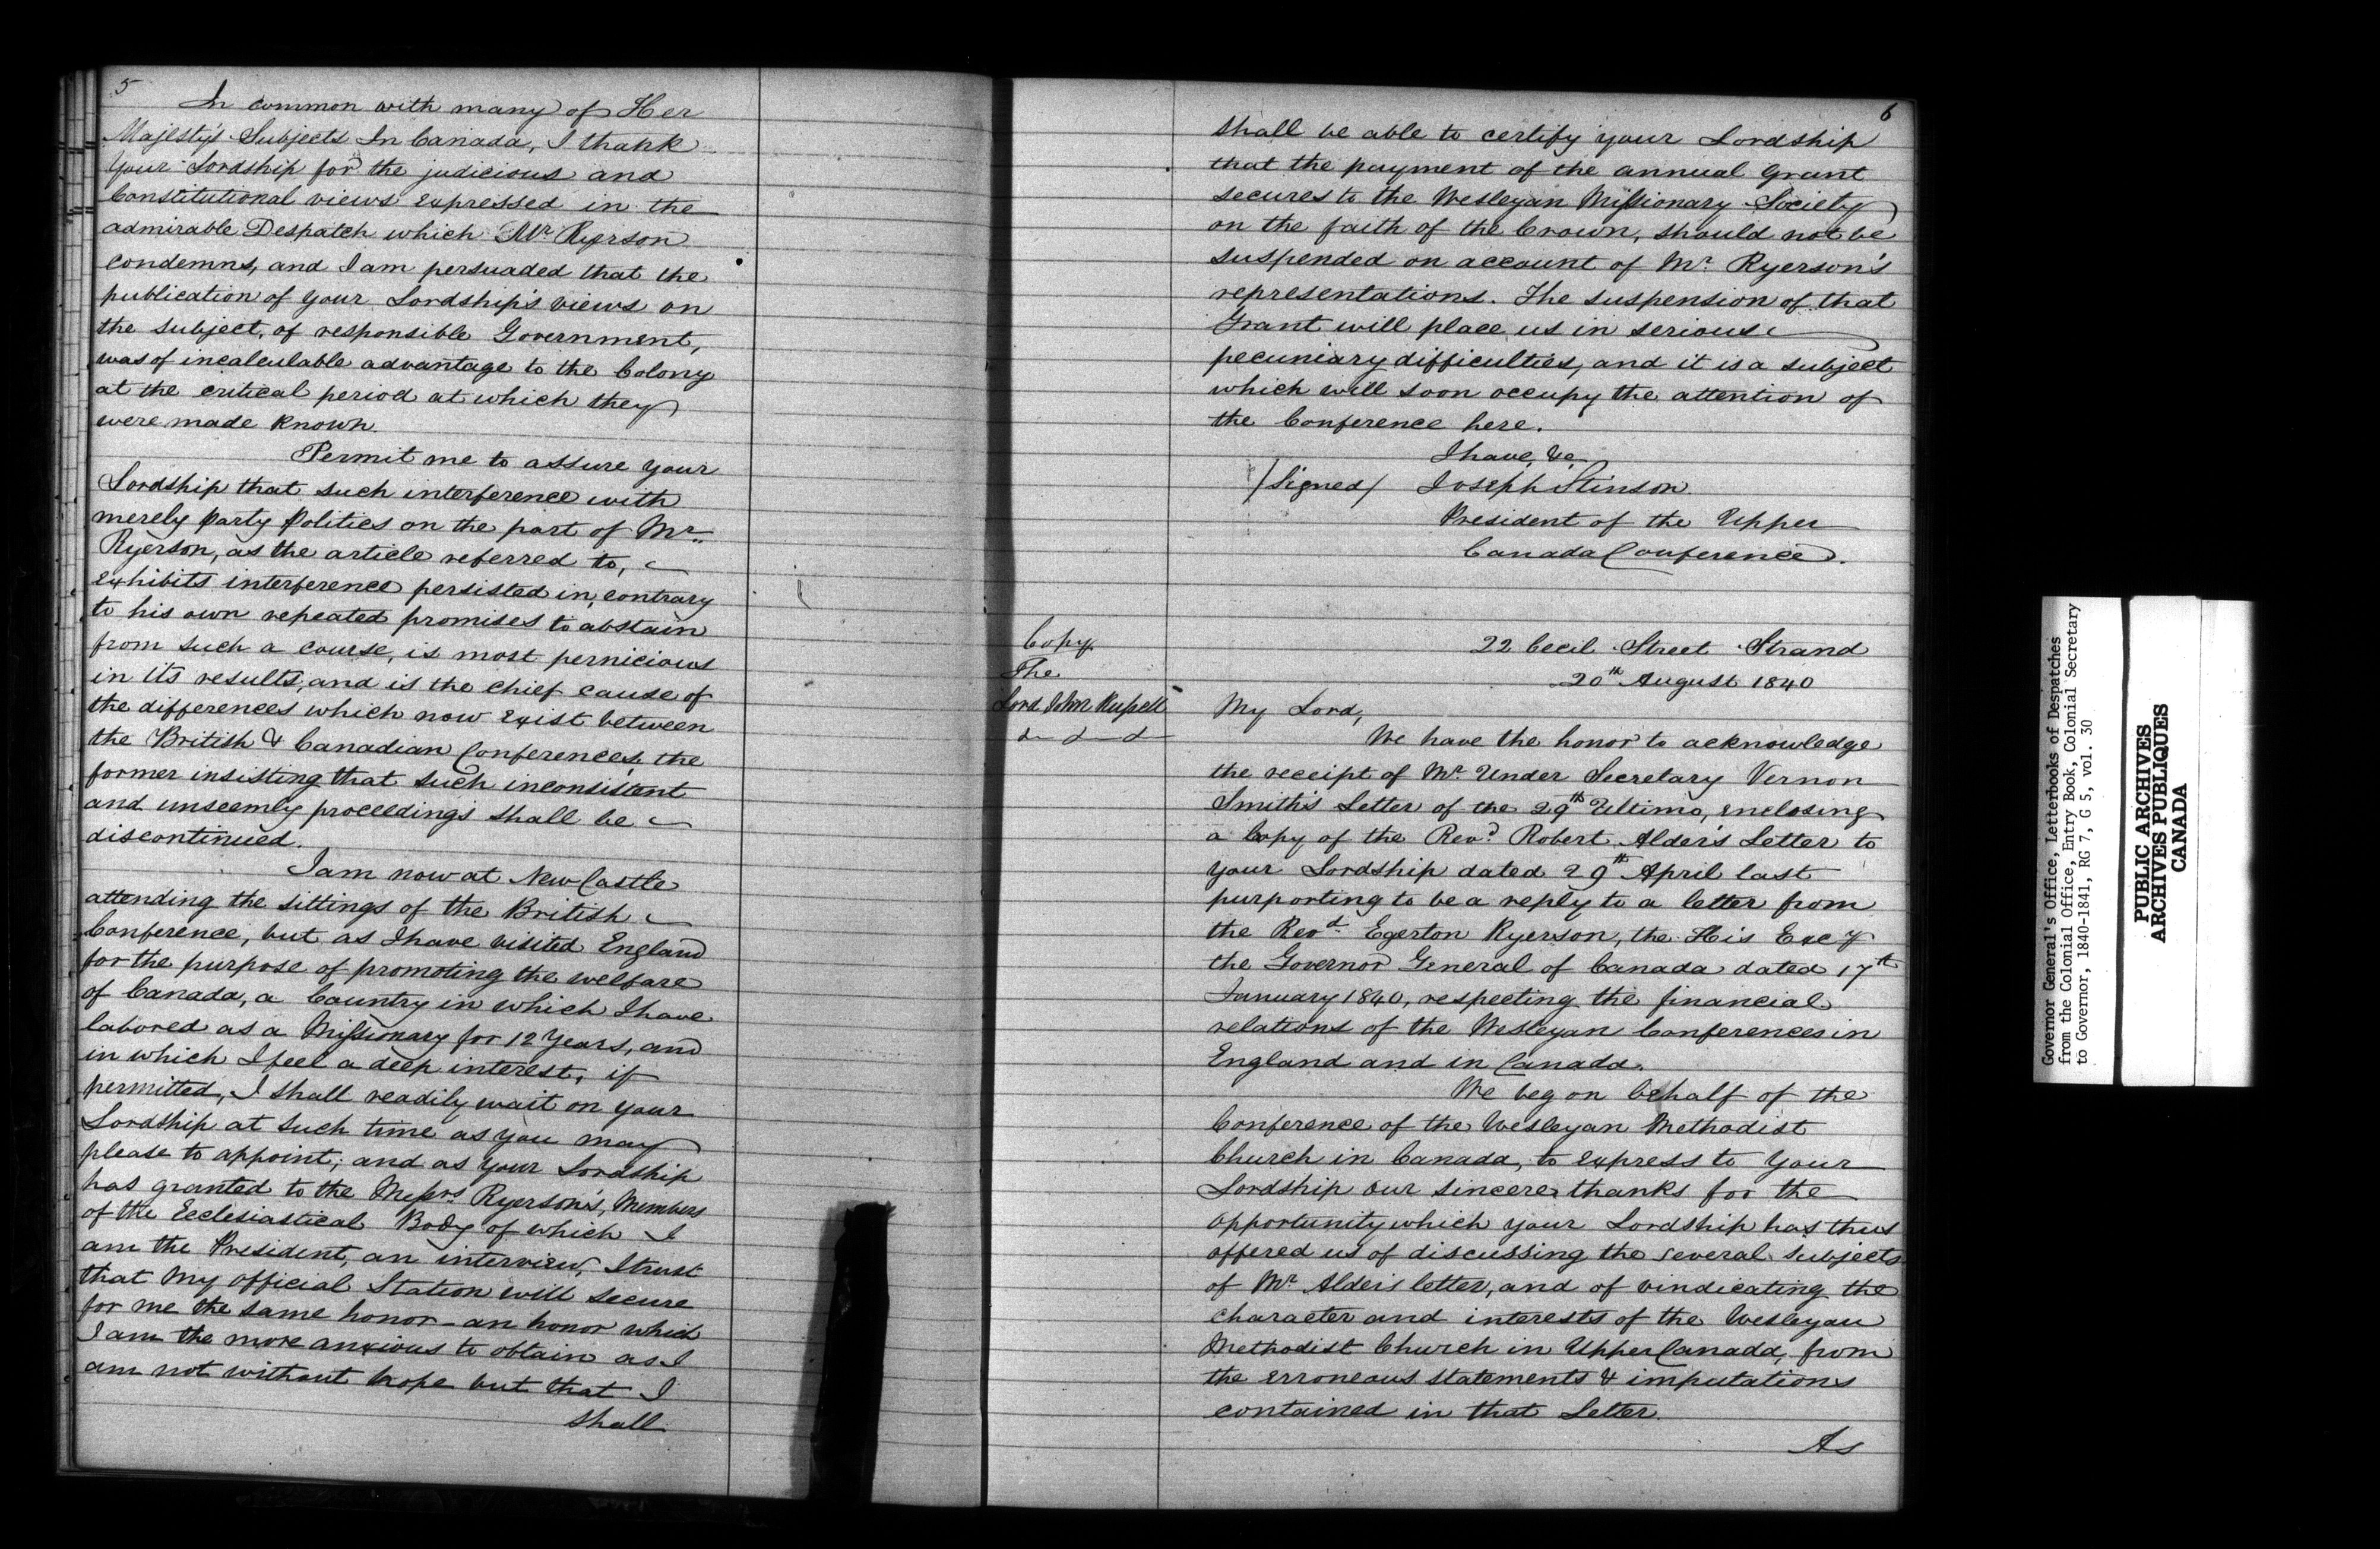 5
In common with many of Her
Majesty's Subjects In Canada, I thank
Your Lordship for the judicious and
Constitutional views expressed in the
admirable Despatch which Mr. Ryerson
condemns, and I am persuaded that the
publication of your Lordship's views on
the subject, of responsible Government,
was of incalculable advantage to the Colony
at the critical period at which they
were made known.
Permit me to assure your
Lordship that such interference with
merely Party Politics on the part of Mr.
Ryerson, as the article referred to,
exhibits interference persisted in, contrary
to his own repeated promises to abstain
from such a course, is most pernicious
in its results, and is the chief cause of
the differences which now exist between
the British & Canadian Conferences, the
former insisting that such inconsistent
and unseemly proceedings shall be
discontinued.
I am now at New Castle
attending the sittings of the British
Conference, but as I have visited England
for the purpose of promoting the welfare
of Canada, a Country in which I have
labored as a Missionary for 12 Years, and
in which I feel a deep interest, if
permitted, I shall readily wait on your
Lordship at such time as you may
please to appoint; and as your Lordship
has granted to the Messrs Ryerson's, Members
of the Ecclesiastical Body of which I
am the President, an interview, I trust
that my official Station will secure
for me the same honor - an honor which
I am the more anxious to obtain as I
am not without hope but that I
shall
6
shall be able to certify your Lordship
that the payment of the annual Grant
secures to the Wesleyan Missionary Society
on the faith of the Crown, should not be
suspended on account of Mr. Ryerson's
representations. The suspension of that
Grant will place us in serious
pecuniary difficulties, and it is a subject
which will soon occupy the attention of
the Conference here.
I have, &c
/Signed/ Joseph Stinson.
President of the Upper
Canada Conference.
Copy.
The
Lord John Russell
&c &c &c
22 Cecil Street Strand
20th August 1840
My Lord,
We have the honor to acknowledge
the receipt of Mr. Under Secretary Vernon
Smith's Letter of the 29th Ultimo, enclosing
a Copy of the Revd. Robert Alder's Letter to
your Lordship dated 29th April last
purporting to be a reply to a letter from
the Revd. Egerton Ryerson, the His Excy
the Governor General of Canada dated 17th
January 1840, respecting the financial
relations of the Wesleyan Conferences in
England and in Canada.
We beg on behalf of the
Conference of the Wesleyan Methodist
Church in Canada, to express to Your
Lordship our sincere thanks for the
opportunity which your Lordship has thus
offered us of discussing the several subjects
of Mr. Alder's letter, and of vindicating the
character and interests of the Wesleyan
Methodist Church in Upper Canada, from
the erroneous statements & imputations
contained in that Letter.
As
Governor General's Office, Letterbooks of Despatches
from the Colonial Office, Entry Book, Colonial Secretary
to Governor, 1840-1841, RG 7, G 5, vol. 30
PUBLIC ARCHIVES
ARCHIVES PUBLIQUES
CANADA